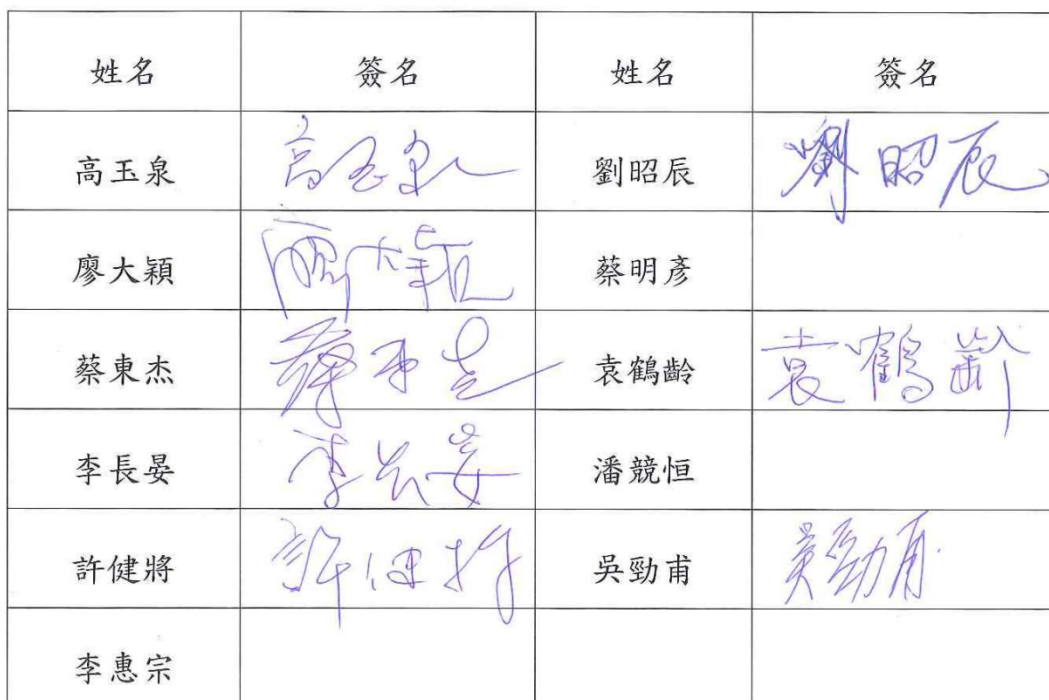 姓名 簽名 姓名 簽名
高玉泉 高玉泉 劉昭辰 劉昭辰
廖大穎 廖大穎 蔡明彥
蔡東杰 蔡東杰 袁鶴齡 袁鶴齡
李長晏 李長晏 潘競恒
許健將 許健將 吳勁甫 吳勁甫
李惠宗